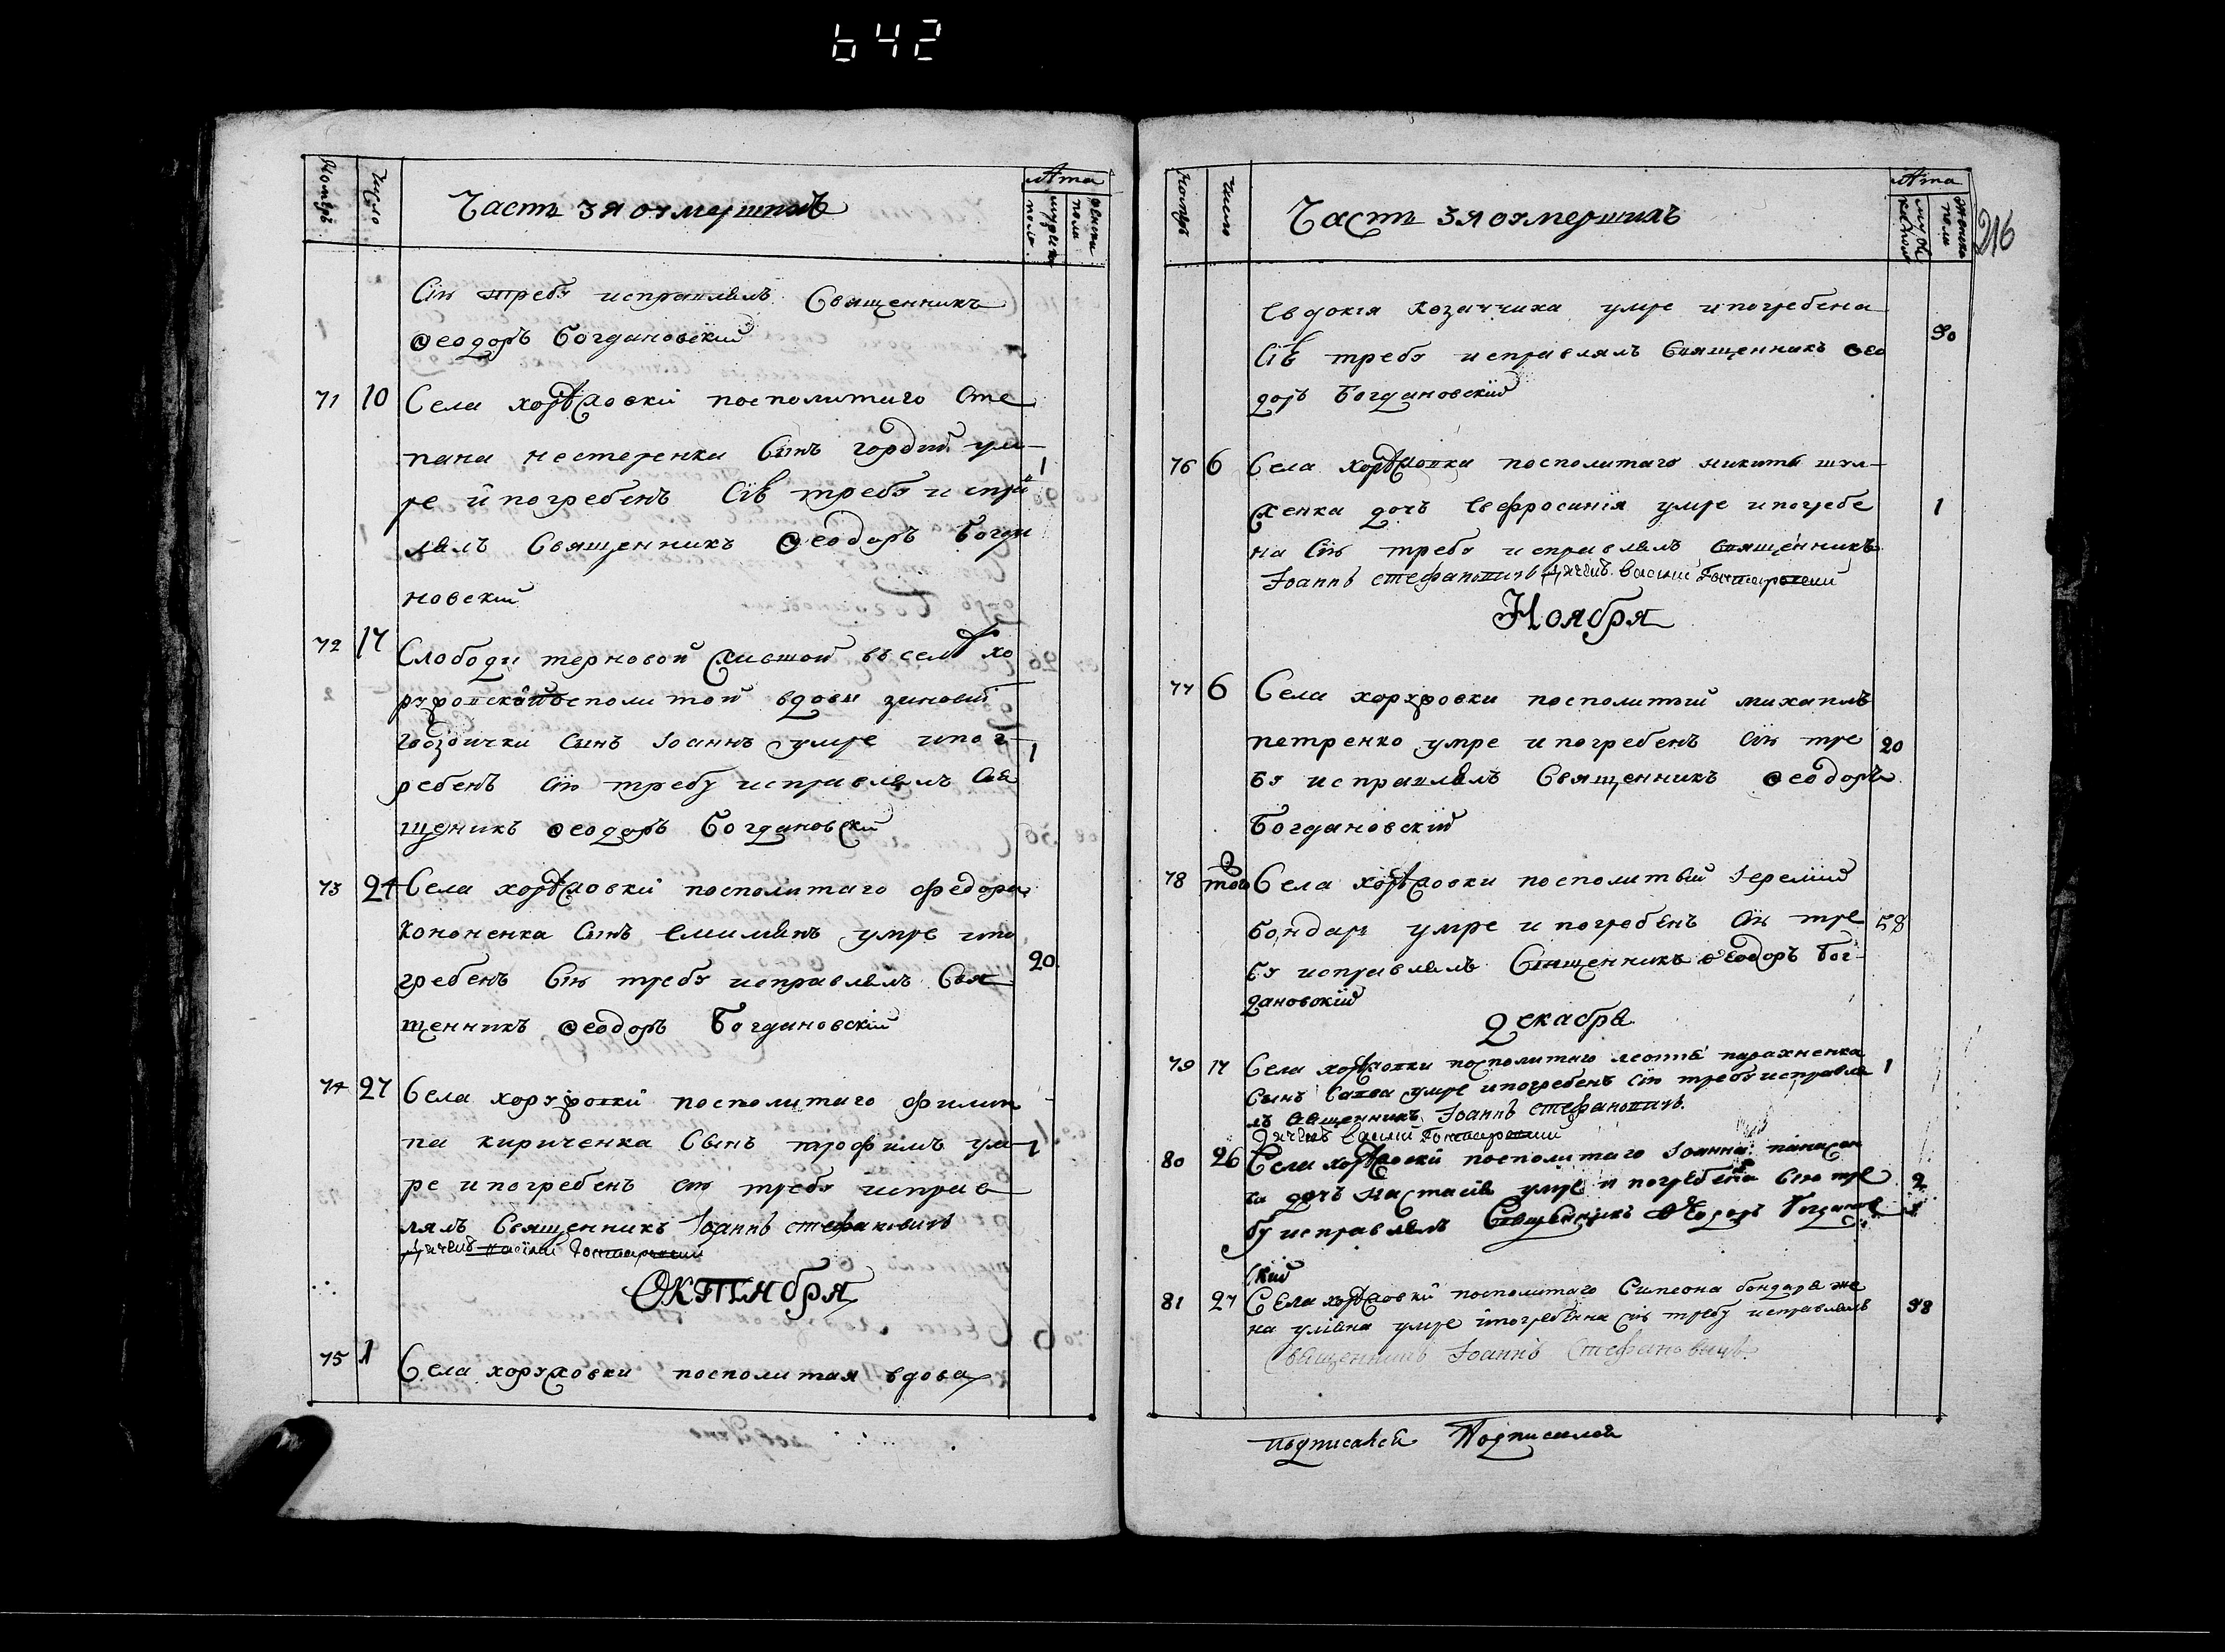 642
Номеръ
Число
Часть 3я оумершихъ
Лѣта
мужеска полу
женска полу
Сію требу исправлялъ Священникъ
Ѳеодоръ Богдановскій
71 10 Села хоружовки посполитаго Сте
пана нестеренка Сынъ гордій ум
ре и погребенъ Сію требу испра 1
влялъ Священникъ Ѳеодоръ Богда
новскій
72 17 Слободи терновой жившой въ селѣ хо
ружовской посполитой вдови зиновій
гвоздички Сынъ Іоаннъ умре и пог 1
ребенъ Сію требу исправлялъ Свя
щеникъ Ѳеодоръ Богдановскій
73 24 Села хоружовки посполитаго Федора
Кононенка Сынъ Емилианъ умре и по
гребенъ Сію требу исправлялъ Свя 20
щенникъ Ѳеодоръ Богдановскій
74 27 Села хоружовки посполитаго Филип
па кириченка Сынъ трофимъ ум 1
ре и погребенъ Сію требу исправ
лялъ Священникъ Іоаннъ Стефановичъ
Октября
75 1 Села хоружовки посполитая вдова
Номеръ
Число
Часть 3я оумершихъ
Лѣта
мужеска полу
женска полу
216
Евдокія Козачиха умре и погребена 90
Сію требу исправлялъ Священникъ Ѳео
доръ Богдановскій
76 6 Села хоружовки посполитаго никити шул
женка дочь Евфросинія умре и погребе 1
на Сію требу исправлялъ Священникъ
Іоаннъ Стефановичъ дячекъ Василій
Ноября
77 6 Села хоружовки посполитый михаилъ
петренко умре и погребенъ Сію тре 20
бу исправлялъ Священникъ Ѳеодоръ
Богдановскій
78 того Села хоружовки посполитый Іеремій
Бондарь умре и погребенъ Сію тре 58
бу исправлялъ Священникъ Ѳеодоръ Бог
дановскій
Декабря
79 17 Села хоружовки посполитаго леонтія парахненка 1
Сынъ Савва умре и погребенъ Сію требу исправля
лъ Священникъ Іоаннъ Стефановичъ
дячекъ Василій
80 26 Села хоружовки посполитаго Іоанна панасен
ка дочъ Настасія умре и погребена Сію тре 2
бу исправлялъ Священникъ Ѳеодоръ Богданов
скій
81 27 Села хоружовки посполитаго Симеона бондаря же
на умре и погребенна Сію требу исправлялъ 98
Священникъ Іоаннъ Стефановичъ